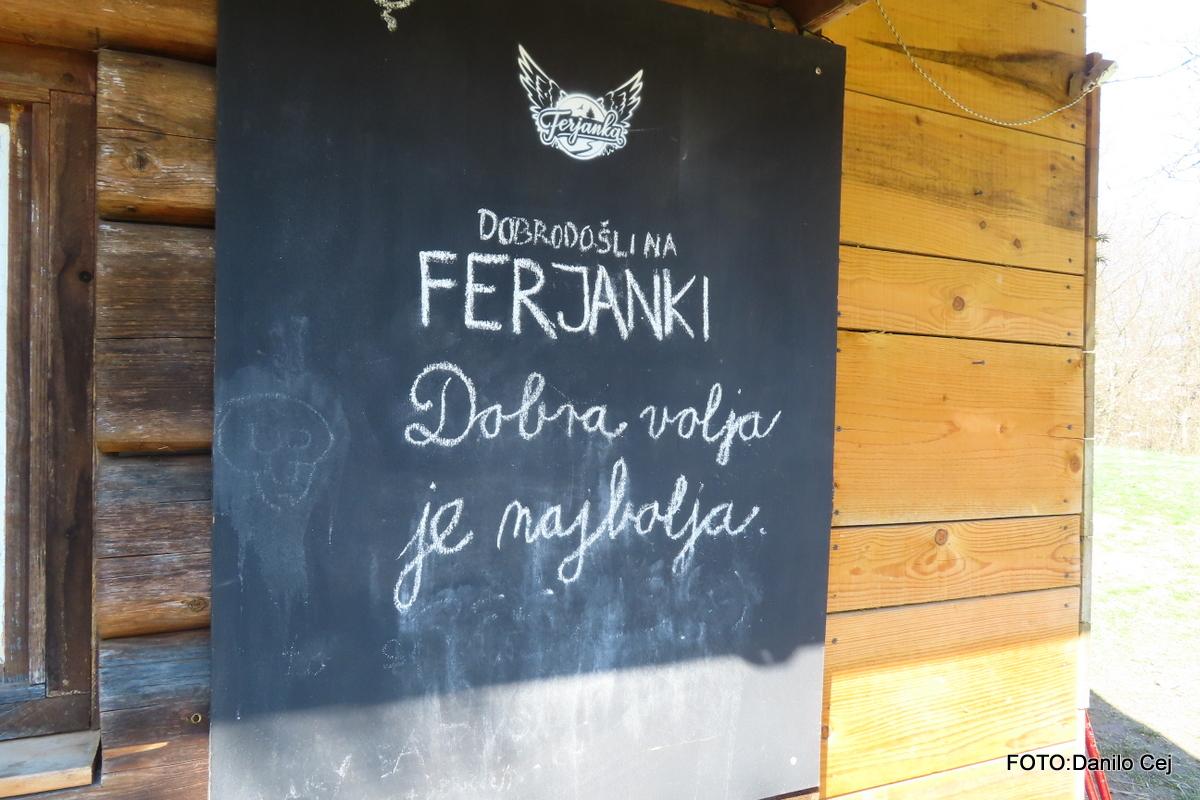 Ferjanka
DOBRODOŠLI NA
FERJANKI
Dobra volja
je najbolja.
FOTO:Danilo Cej